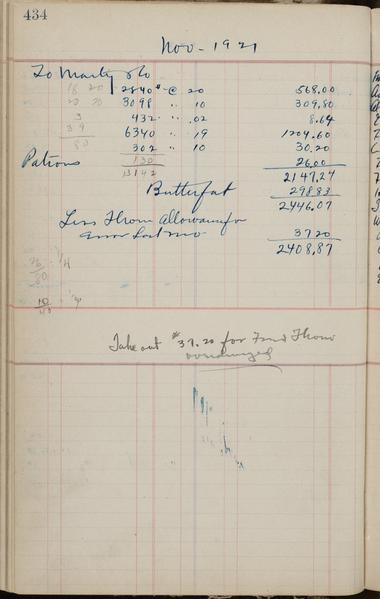 434
Nov - 1921
To Marty & Co
18 20 2840 # @ 20 568.00
20 20 3098 " 10 309.80
3 432 " .02 8.64
39 6340 " 19 1204.60
80 302 " 10 30.20
Patrons 130 26.00
13142 2147.24
Butterfat 298.83
2446.07
Less Thom Allowance for
error Last mo 37.20
2408.87
Take out #37.20 for Fred Thom
overcharged